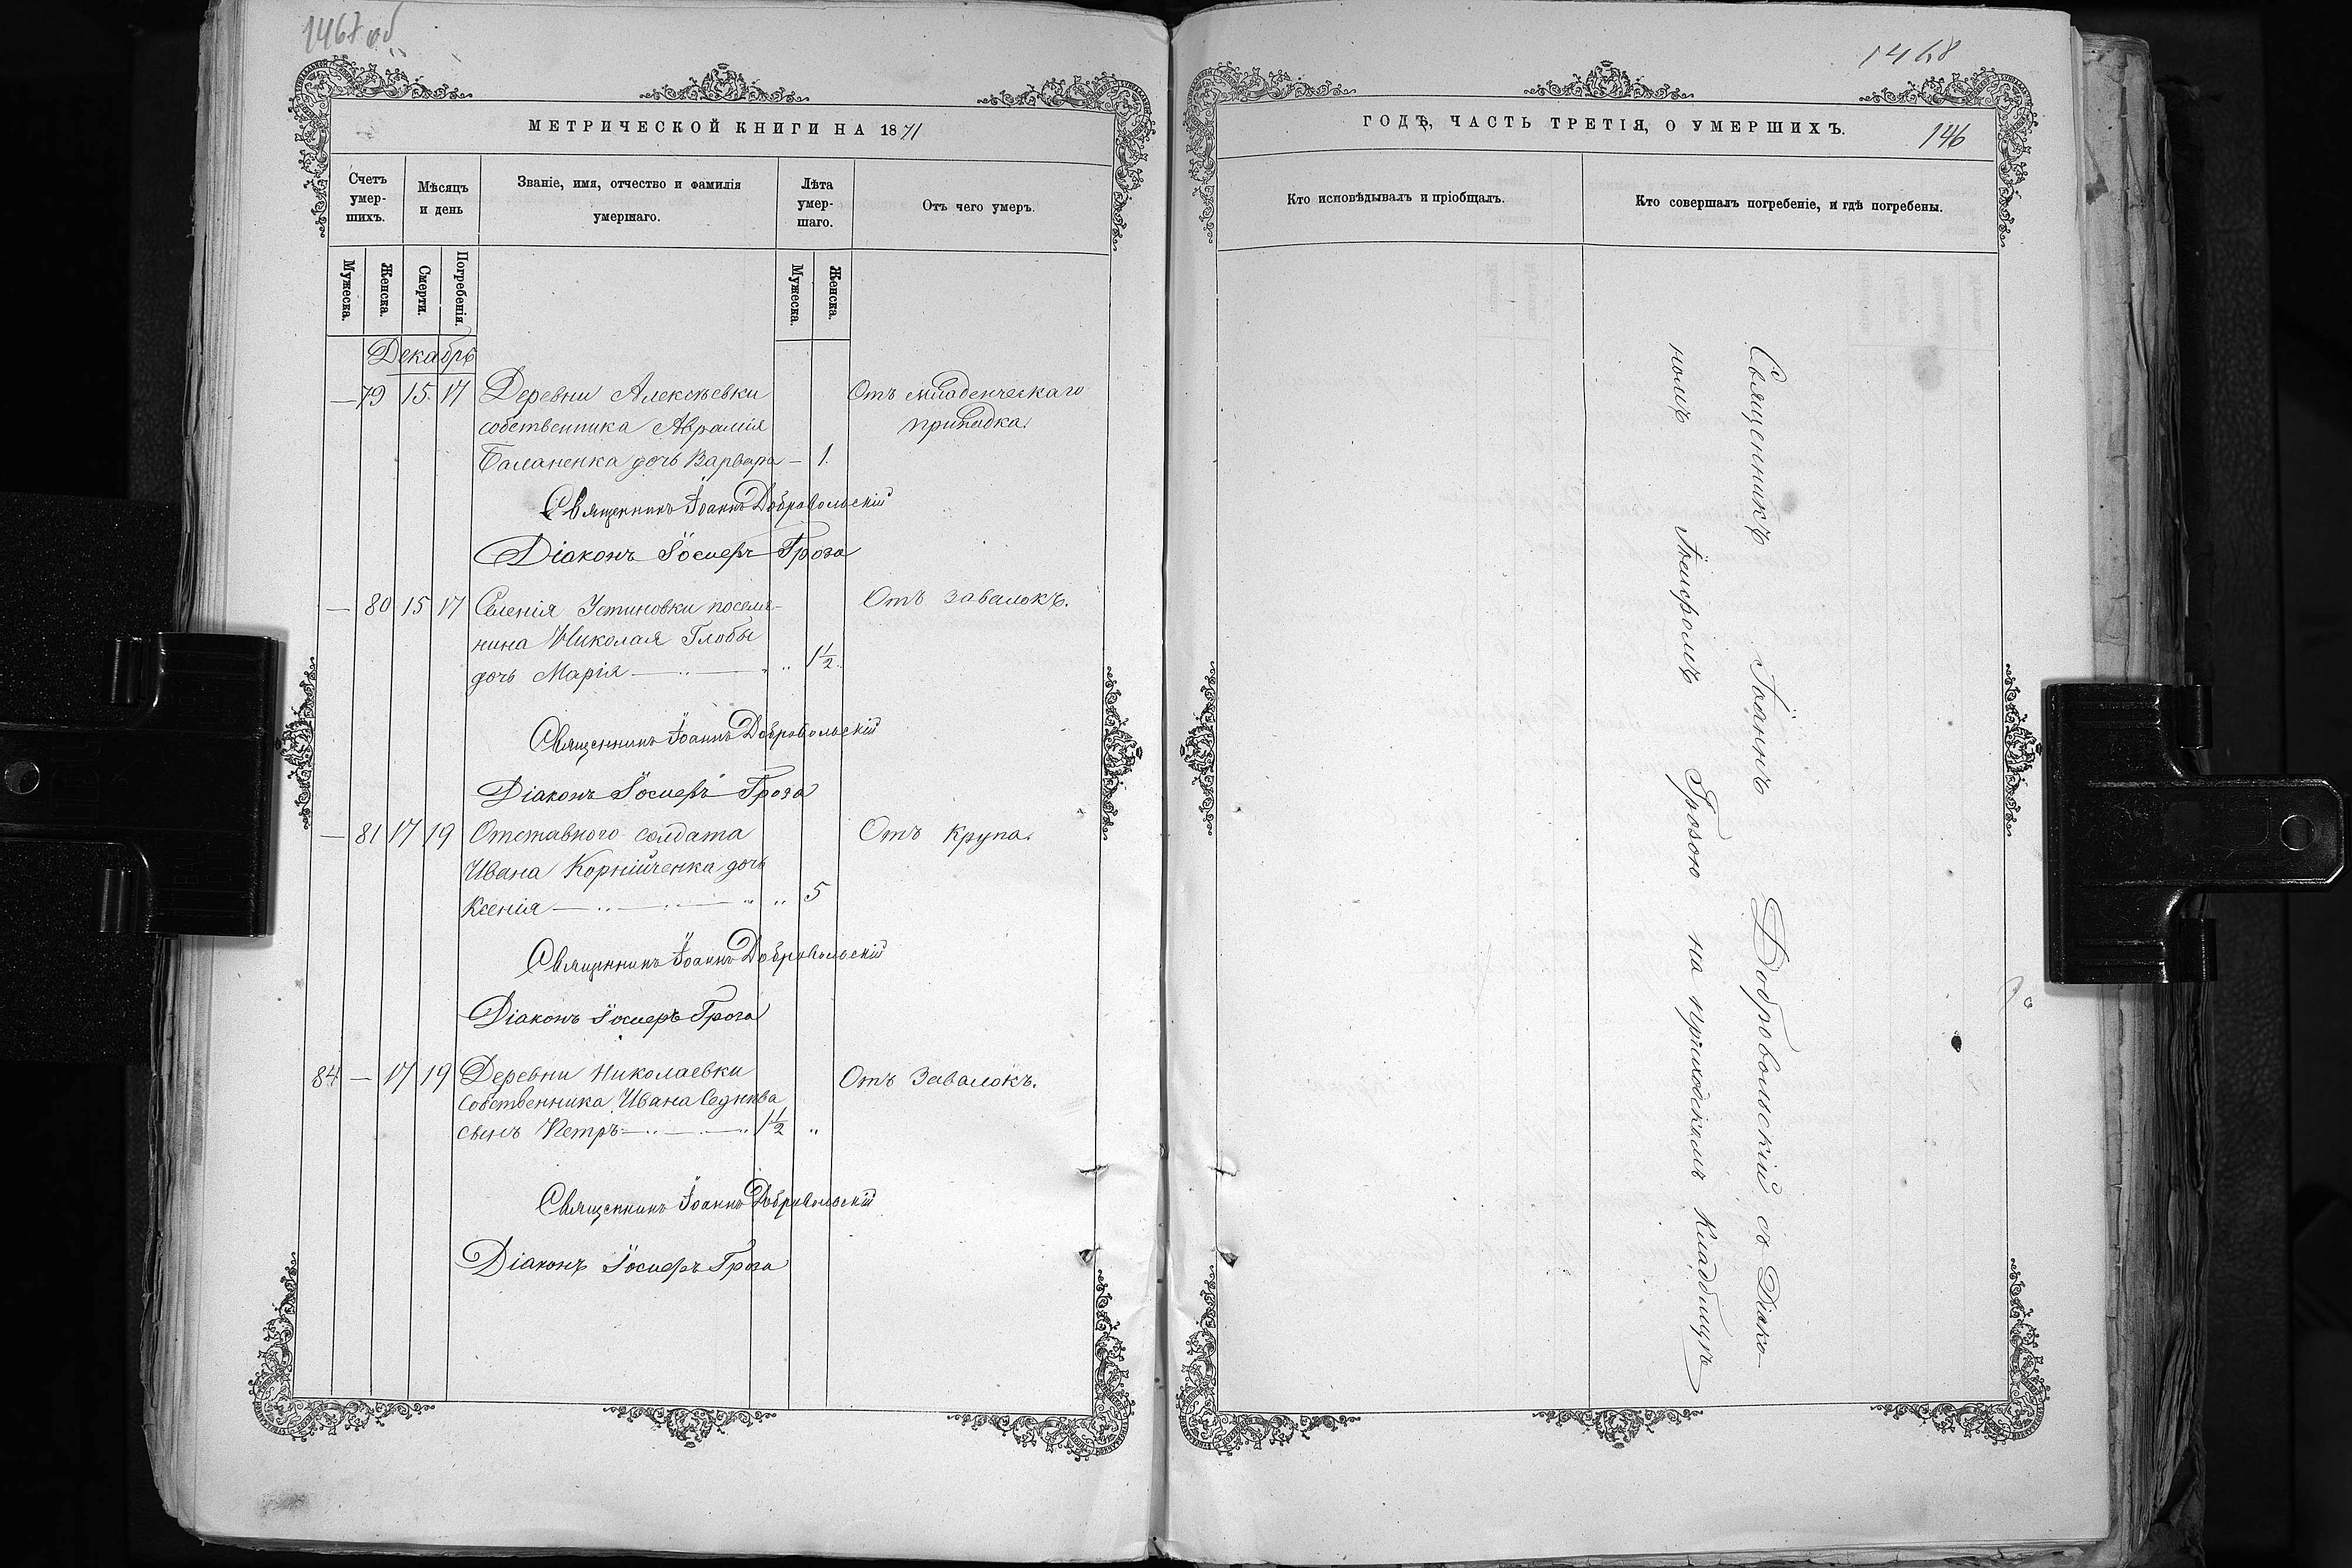 1467 об
МЕТРИЧЕСКОЙ КНИГИ НА 1871
Счетъ умер-шихъ.
Мѣсяцъ и день
Званіе, имя, отчество и фамилія умершаго.
Лѣта умер-шаго.
Отъ чего умеръ.
Мужеска.
Женска.
Смерти.
Погребенія.
Мужеска.
Женска.
Декабрь
— 79 15. 17 Деревни Алексѣевки Отъ младенческаго
собственника Аврамія припадка.
Баланенка дочь Варвара — 1.
Священникъ Іоаннъ Добровольскій
Діаконъ Іосифъ Гроза
— 80 15 17 Селенія Устиновки поселя- Отъ завалокъ.
нина Николая Глобы
дочь Марія — „ — „ „ 1½
Священникъ Іоаннъ Добровольскій
Діаконъ Іосифъ Гроза
— 81 17 19 Отставного солдата Отъ крупа.
Ивана Корнійченка дочь
Ксенія — „ — „ — „ „ 5
Священникъ Іоаннъ Добровольскій
Діаконъ Іосифъ Гроза
84 — 17 19 Деревни Николаевки Отъ завалокъ.
собственника Ивана
сынъ Петръ — „ — „ 1½ „
Священникъ Іоаннъ Добровольскій
Діаконъ Іосифъ Гроза
1468
ГОДѢ, ЧАСТЬ ТРЕТІЯ, О УМЕРШИХЪ.
146
Кто исповѣдывалъ и пріобщалъ.
Кто совершалъ погребеніе, и гдѣ погребены.
Священникъ Іоаннъ Добровольскій съ Діако-
номъ Іосифомъ Грозою на приходскомъ кладбищѣ